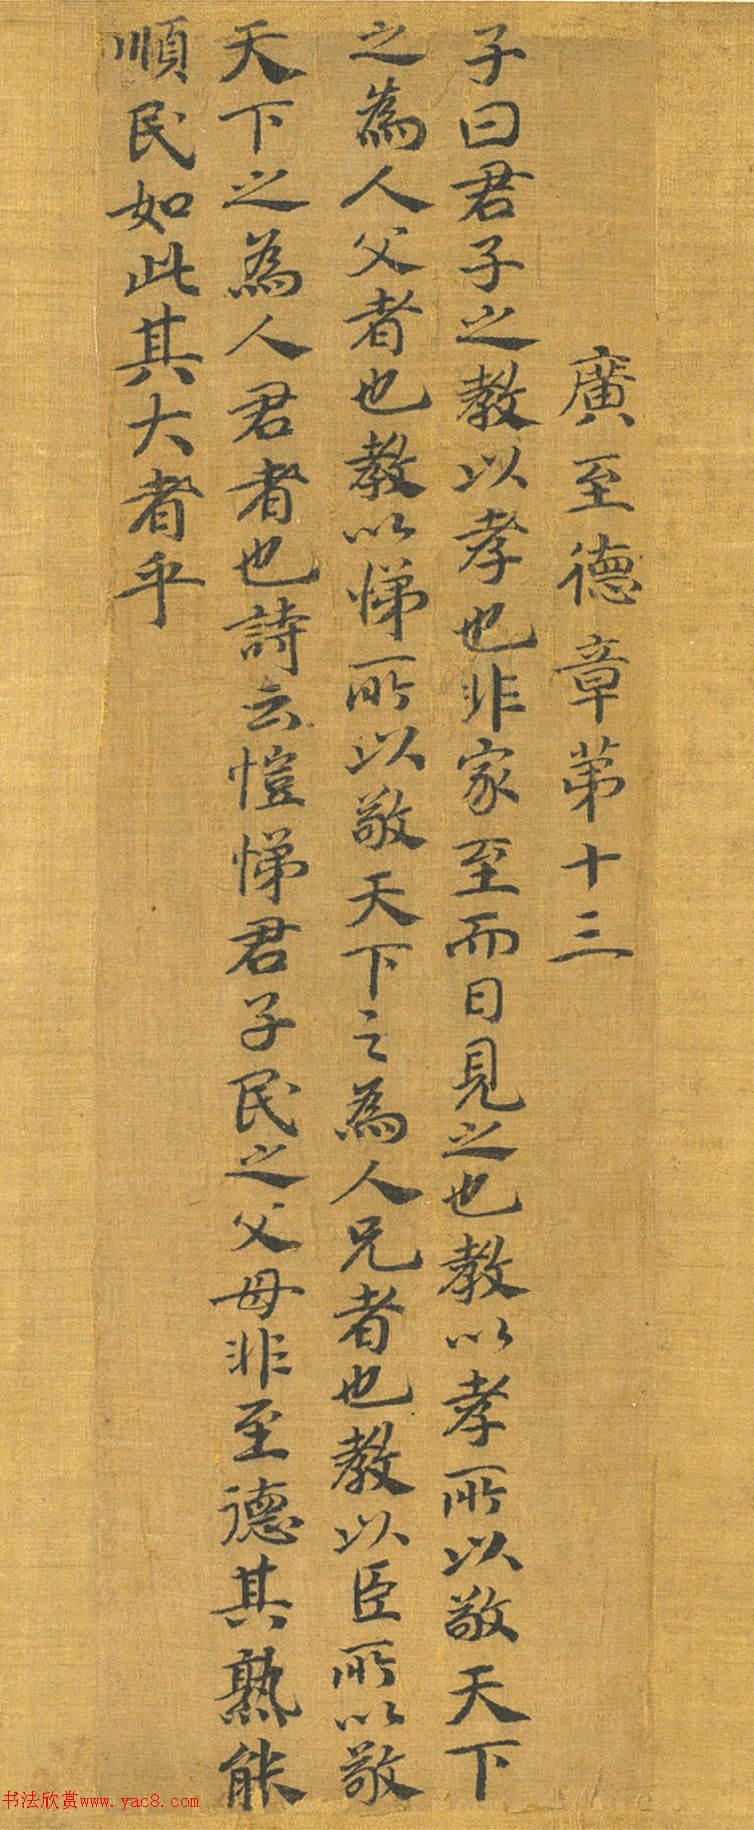 廣至德章第十三
子曰君子之教以孝也非家至而日見之也教以孝所以敬天下
之為人父者也教以悌所以敬天下之為人兄者也教以臣所以敬
天下之為人君者也詩云愷悌君子民之父母非至德其熟能
順民如此其大者乎
书法欣赏www.yac8.com